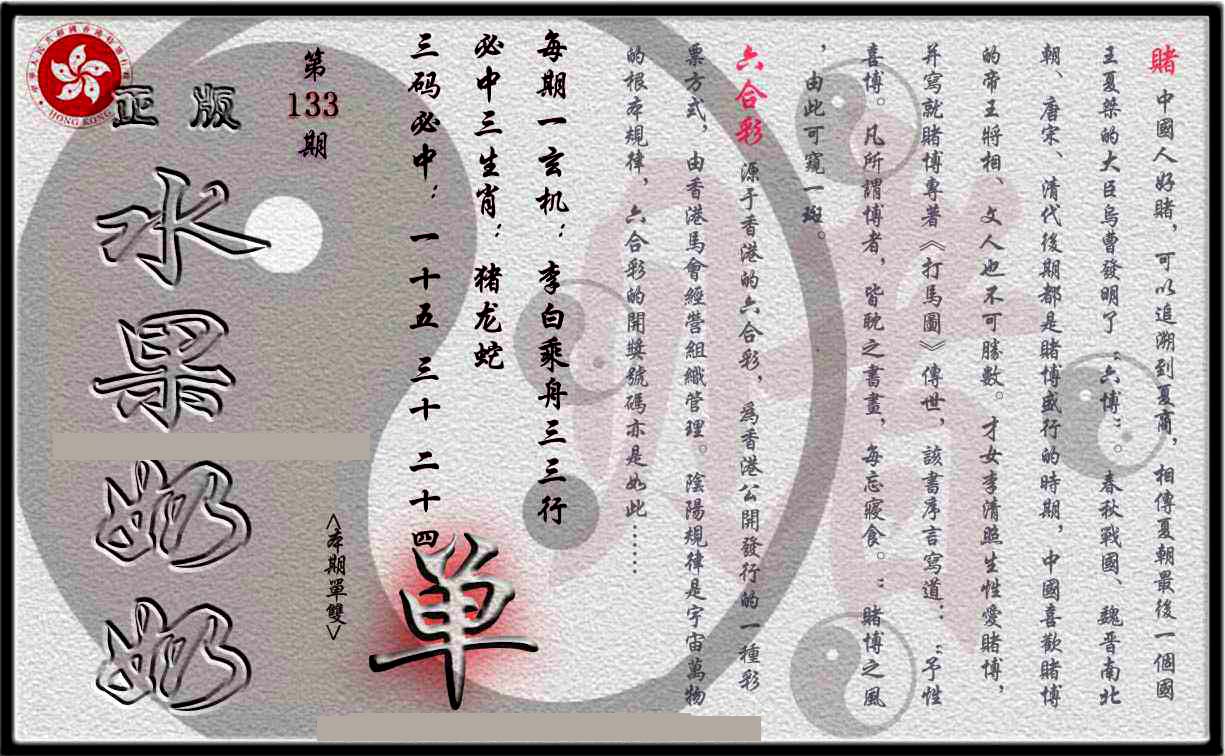 賭 中國人好賭，可以追溯到夏商，相傳夏朝最後一個國
王夏桀的大臣烏曹發明了“六博”。春秋戰國、魏晋南北
朝、唐宋、清代後期都是賭博盛行的時期，中國喜歡賭博
的帝王將相、文人也不可勝數。才女李清照生性愛賭博，
并寫就賭博專著《打馬圖》傳世，該書序言寫道：“予性
喜博。凡所謂博者，皆耽之書畫，每忘寢食。”賭博之風
，由此可窺一斑。
六合彩 源于香港的六合彩，爲香港公開發行的一種彩
票方式，由香港馬會經營組織管理。陰陽規律是宇宙萬物
的根本規律，六合彩的開獎號碼亦是如此……
每期一玄机：李白乘舟三三行
必中三生肖：猪龙蛇
三码必中：一十五 三十 二十四
单
第133期
<本期單雙>
正版
水果奶奶
HONG KONG